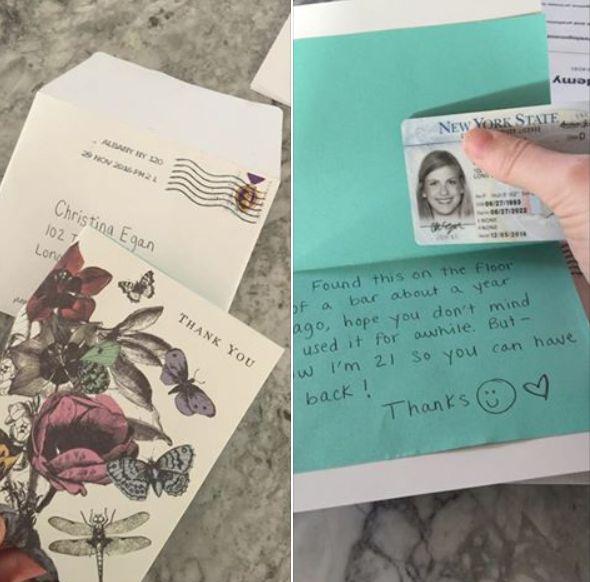 ALBANY NY 120
29 NOV 2016 PM 2 L
Christina Egan
102
Long
THANK YOU
NEW YORK STATE
06/27/1993
06/27/2022
NONE
NONE
Found this on the floor
of a bar about a year
ago, hope you don't mind
used it for awhile. But-
I'm 21 so you can have
back!
Thanks